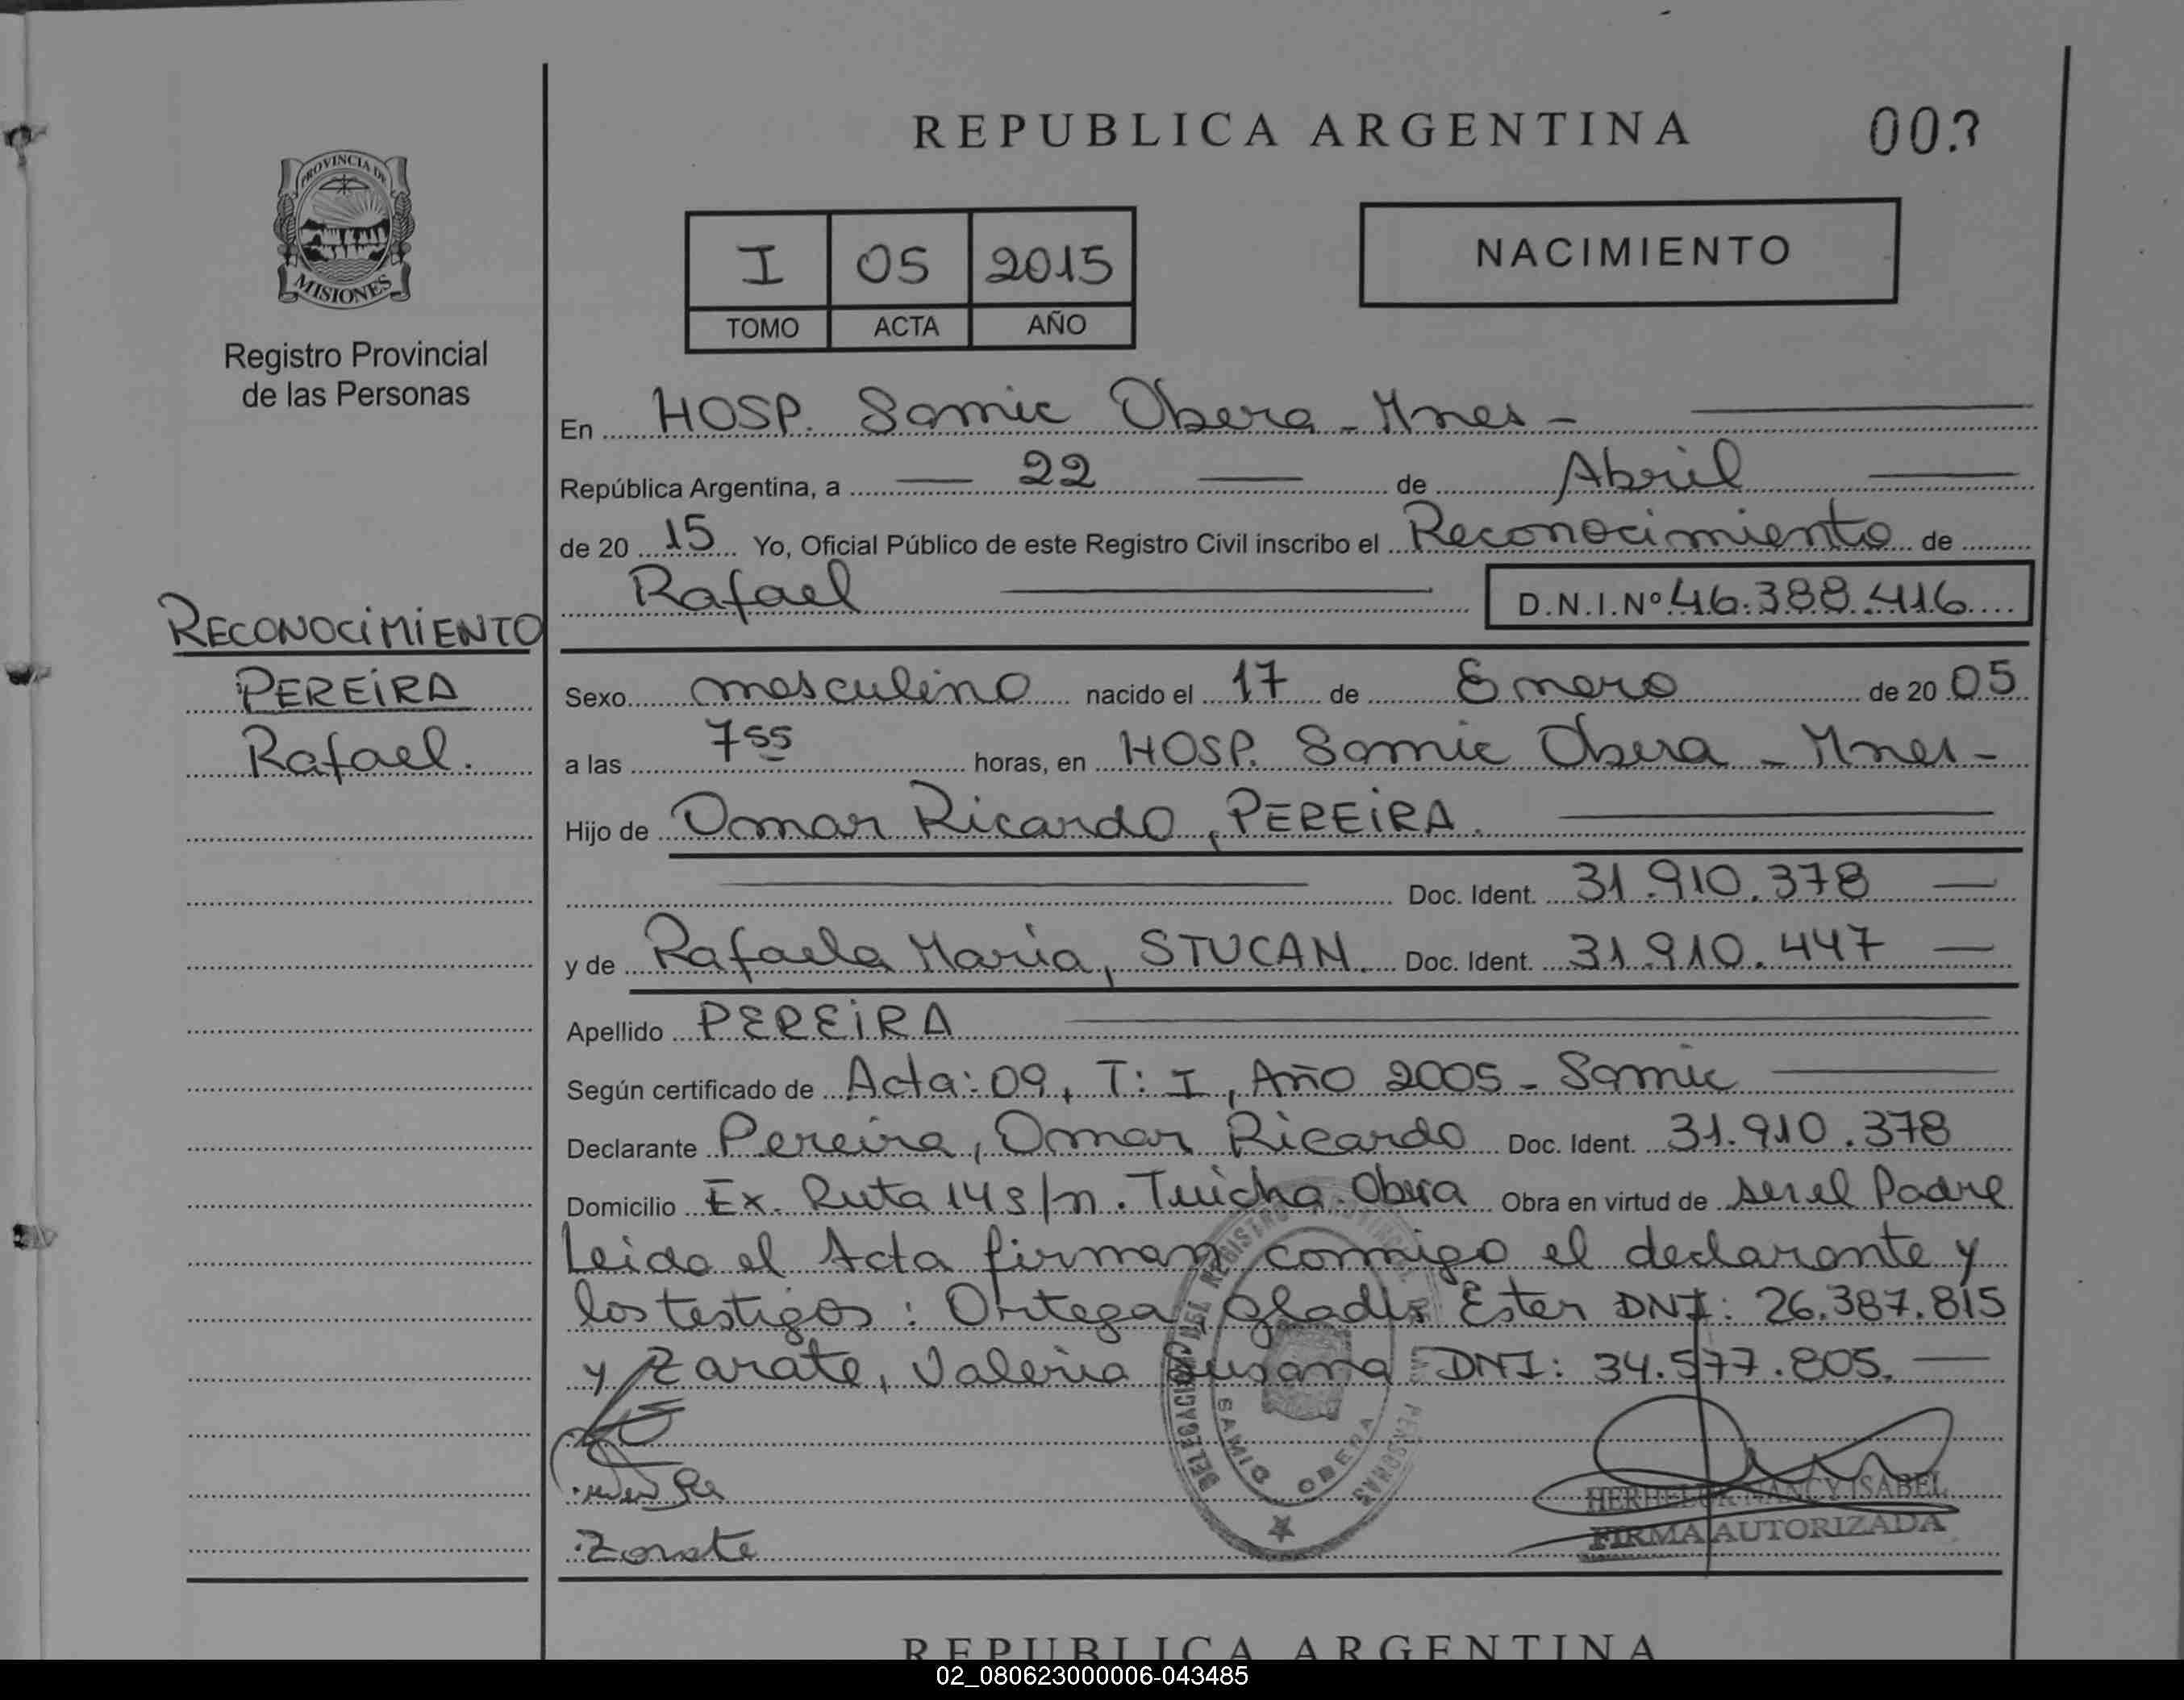 REPUBLICA ARGENTINA
003
PROVINCIA DE
MISIONES
Registro Provincial
de las Personas
I 05 2015
TOMO ACTA AÑO
NACIMIENTO
En HOSP. Samic Obera - Mnes -
República Argentina, a 22 de Abril
de 20 15 Yo, Oficial Público de este Registro Civil inscribo el Reconocimiento de
Rafael D.N.I.Nº 46.388.416
RECONOCIMIENTO
PEREIRA
Rafael.
Sexo masculino nacido el 17 de Enero de 20 05
a las 7 55 horas, en HOSP. Samic Obera - Mnes -
Hijo de Omar Ricardo, PEREIRA.
Doc. Ident. 31.910.378
y de Rafaela Maria, STUCAN. Doc. Ident. 31.910.447
Apellido PEREIRA
Según certificado de Acta: 09, T: I, Año 2005 - Samic
Declarante Pereira, Omar Ricardo Doc. Ident. 31.910.378
Domicilio Ex. Ruta 14 s/n. Tuicha. Obra Obra en virtud de ser el Padre
Leida el Acta firman conmigo el declarante y
los testigos: Ortega, Gladis Ester DNI: 26.387.815
y Zarate, Valeria Susana DNI: 34.577.805.
SAMIC OBERA
NANCY ISABEL
FIRMA AUTORIZADA
Zarate
REPUBLICA ARGENTINA
02_080623000006-043485